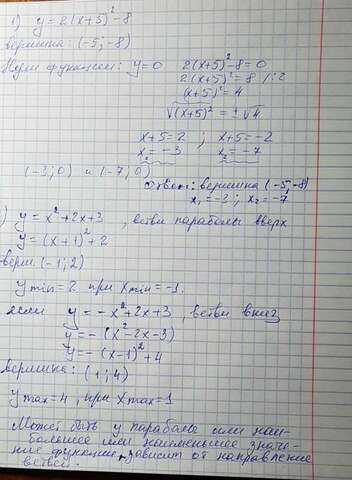 1) y = 2(x+5)² - 8
вершина: (-5; -8)
Нули функции: y=0 2(x+5)² - 8 = 0
2(x+5)² = 8 /:2
(x+5)² = 4
√(x+5)² = ±√4
x+5=2 ; x+5=-2
x = -3 x = -7
(-3; 0) и (-7; 0)
Ответ: вершина (-5; -8)
x₁ = -3 ; x₂ = -7
) y = x² + 2x + 3 , ветви параболы вверх
y = (x+1)² + 2
верш. (-1; 2)
y min = 2 при x min = -1.
если y = -x² + 2x + 3 , ветви вниз
y = -(x² - 2x - 3)
y = -(x-1)² + 4
вершина: (1; 4)
y max = 4, при x max = 1
Может быть у параболы или наи-
большее или наименьшее значе-
ние функции, зависит от направление
ветвей.